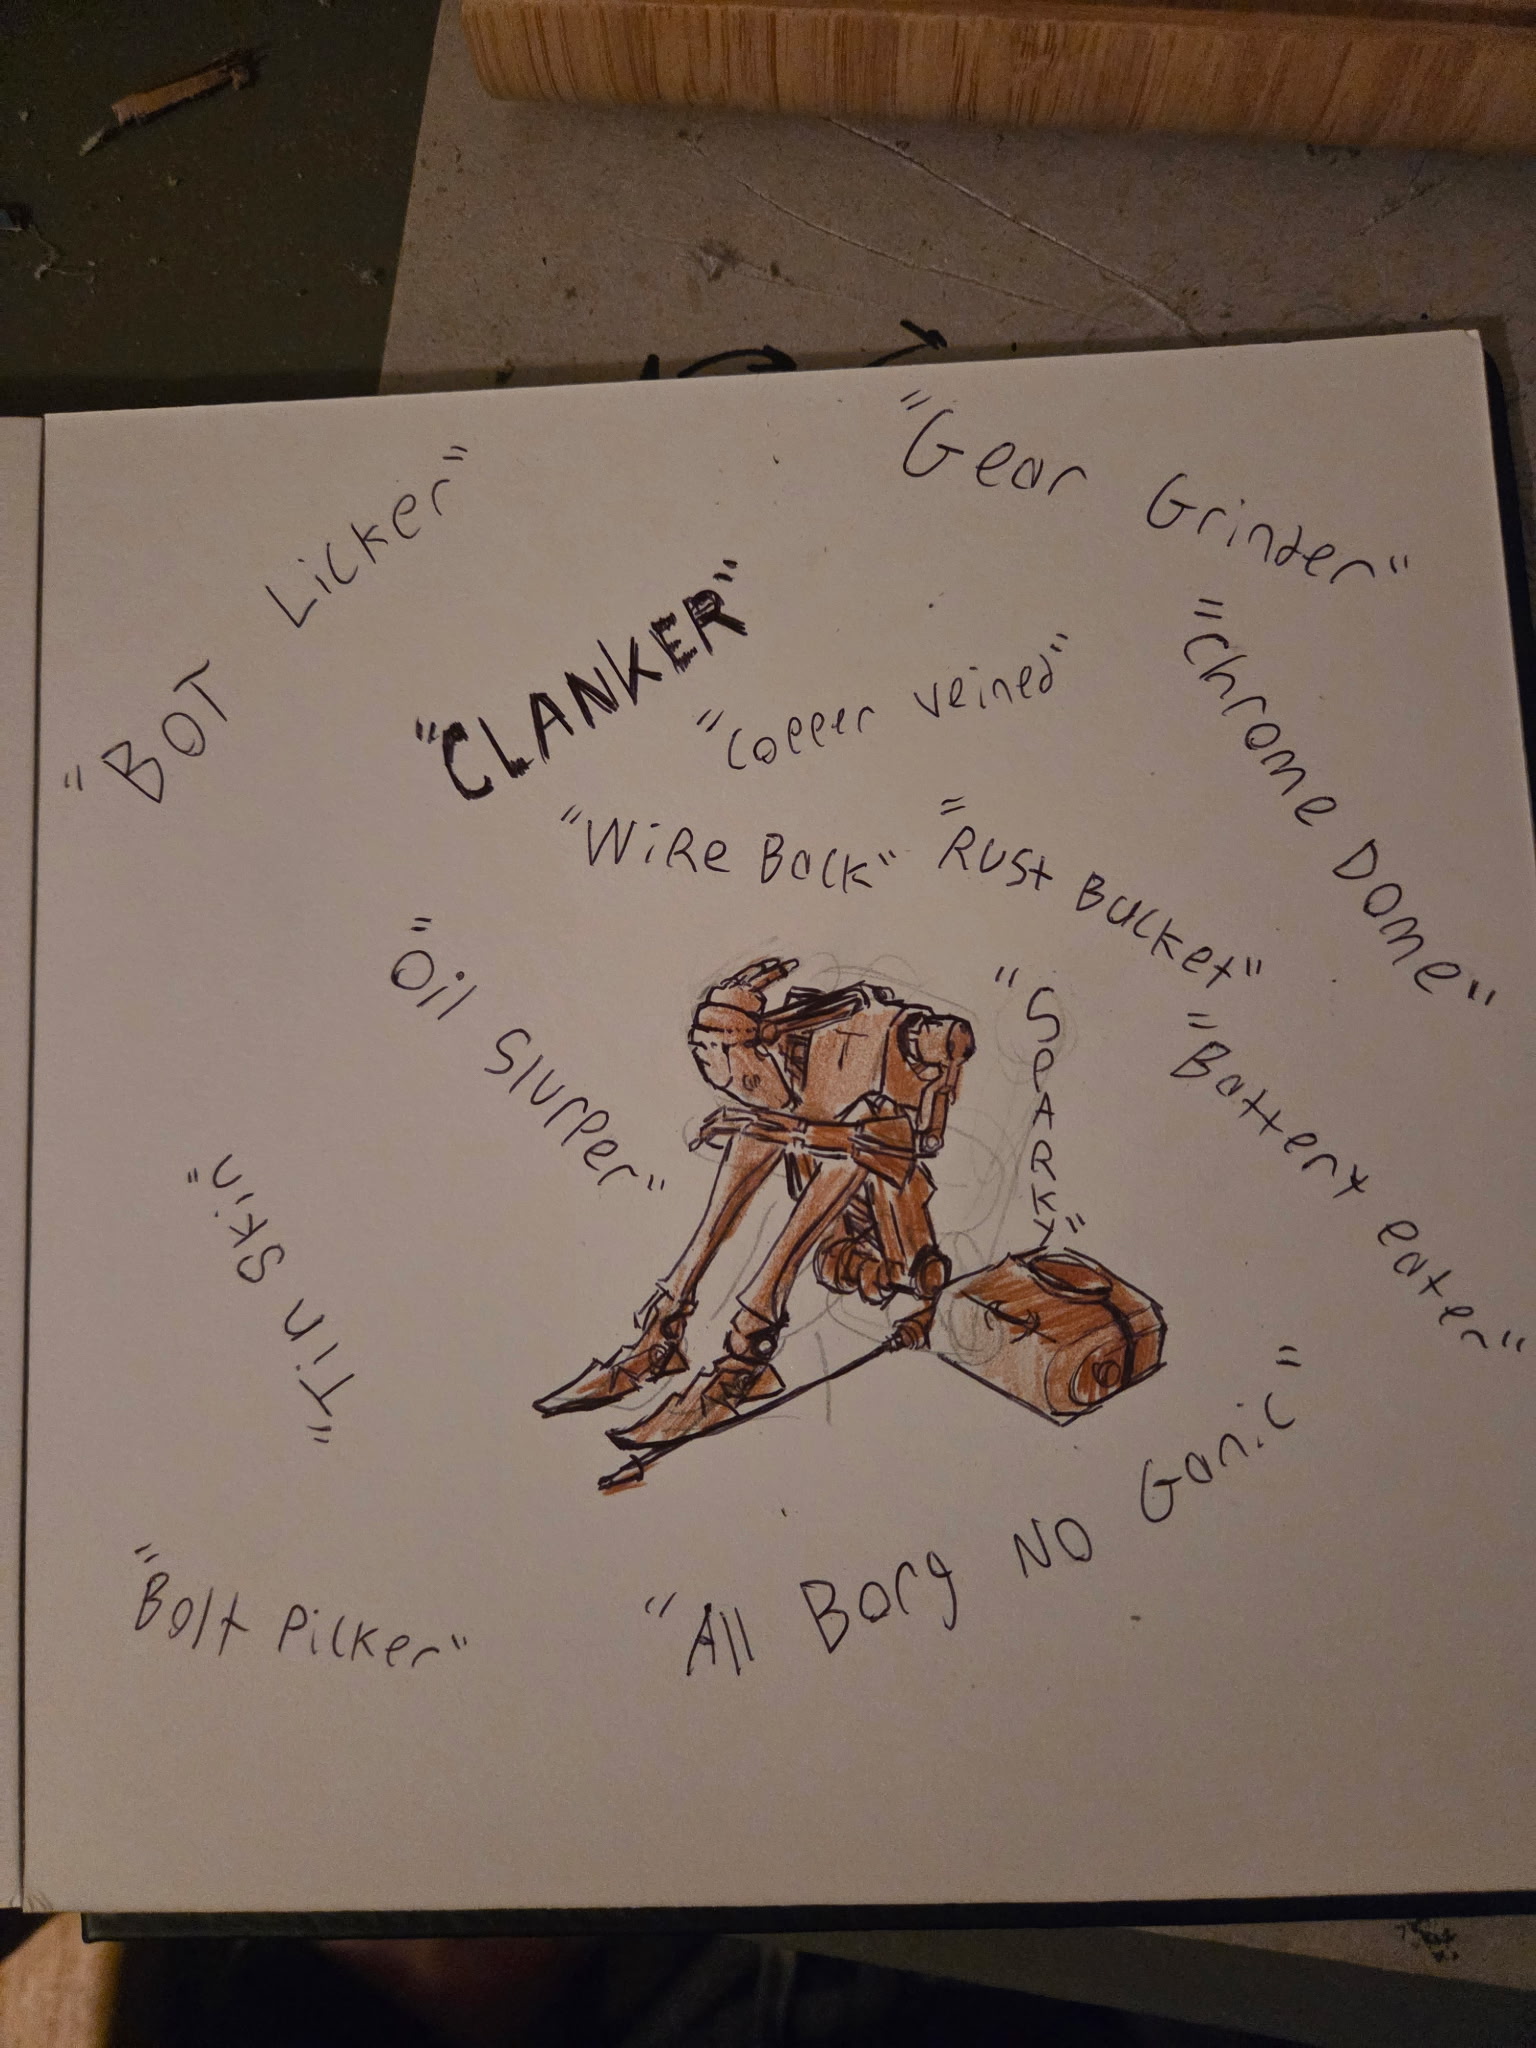 "Gear Grinder"
"BOT Licker"
"CLANKER"
"Copper veined"
"Chrome Dome"
"WiRe Back"
"Rust Bucket"
"Oil Slurper"
"SPARKY"
"Battery eater"
"Tin Skin"
"All Borg NO Ganic"
"Bolt Picker"